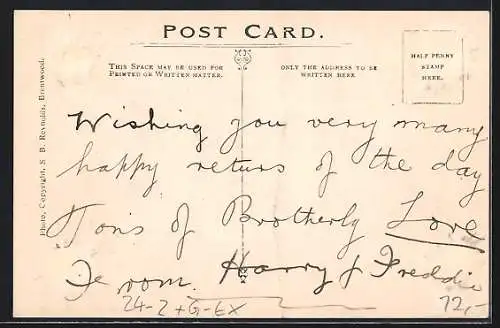 POST CARD.
THIS SPACE MAY BE USED FOR
PRINTED OR WRITTEN MATTER.
ONLY THE ADDRESS TO BE
WRITTEN HERE
HALF PENNY
STAMP
HERE.
Photo, Copyright, S. B. Reynolds, Brentwood.
Wishing you very many
happy returs of the day
Tons of Brotherly Love
From Harry & Freddie
24-2+G-EX
12,-